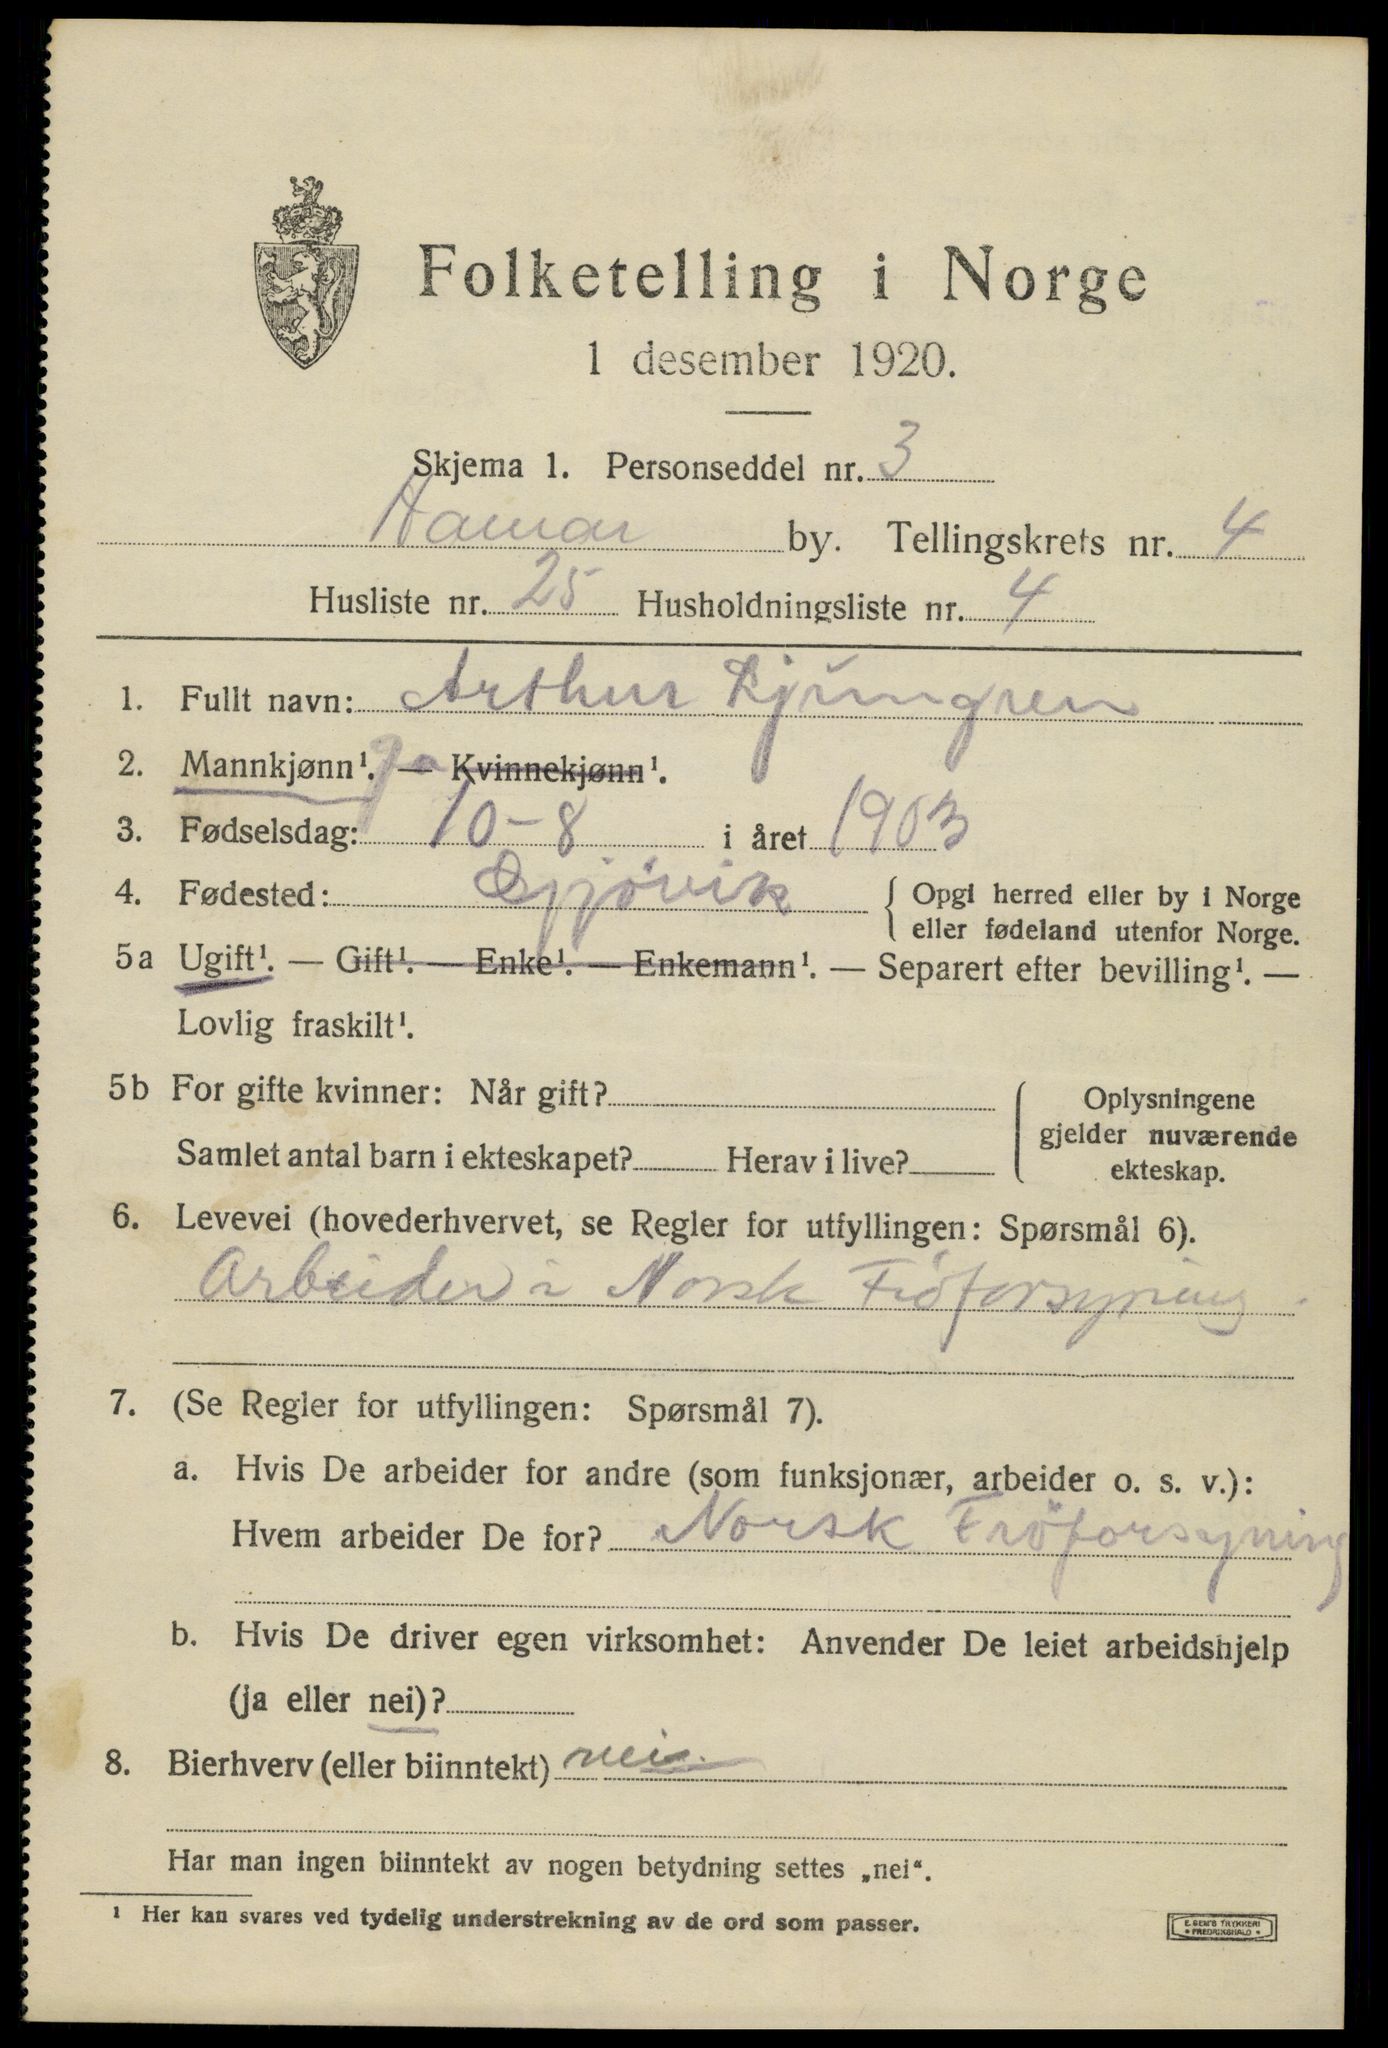 Folketelling i Norge
1 desember 1920.
Skjema 1. Personseddel nr. 3
Hamar by. Tellingskrets nr. 4
Husliste nr. 25 Husholdningsliste nr. 4
1. Fullt navn: Arthur Ljŭngren
2. Mannkjønn¹. Ja — Kvinnekjønn¹.
3. Fødselsdag: 10-8 i året 1903
4. Fødested: Gjövik { Opgi herred eller by i Norge
eller fødeland utenfor Norge.
5a Ugift¹. — Gift¹. — Enke¹. — Enkemann¹. — Separert efter bevilling¹. —
Lovlig fraskilt¹.
5b For gifte kvinner: Når gift?
Samlet antal barn i ekteskapet? Herav i live?
Oplysningene
gjelder nuværende
ekteskap.
6. Levevei (hovederhvervet, se Regler for utfyllingen: Spørsmål 6).
Arbeider i Norsk Fröforsyning
7. (Se Regler for utfyllingen: Spørsmål 7).
a. Hvis De arbeider for andre (som funksjonær, arbeider o. s. v.):
Hvem arbeider De for? Norsk Fröforsyning
b. Hvis De driver egen virksomhet: Anvender De leiet arbeidshjelp
(ja eller nei)?
8. Bierhverv (eller biinntekt) nei.
Har man ingen biinntekt av nogen betydning settes „nei“.
¹ Her kan svares ved tydelig understrekning av de ord som passer.
E. SEM'S TRYKKERI
FREDRIKSHALD